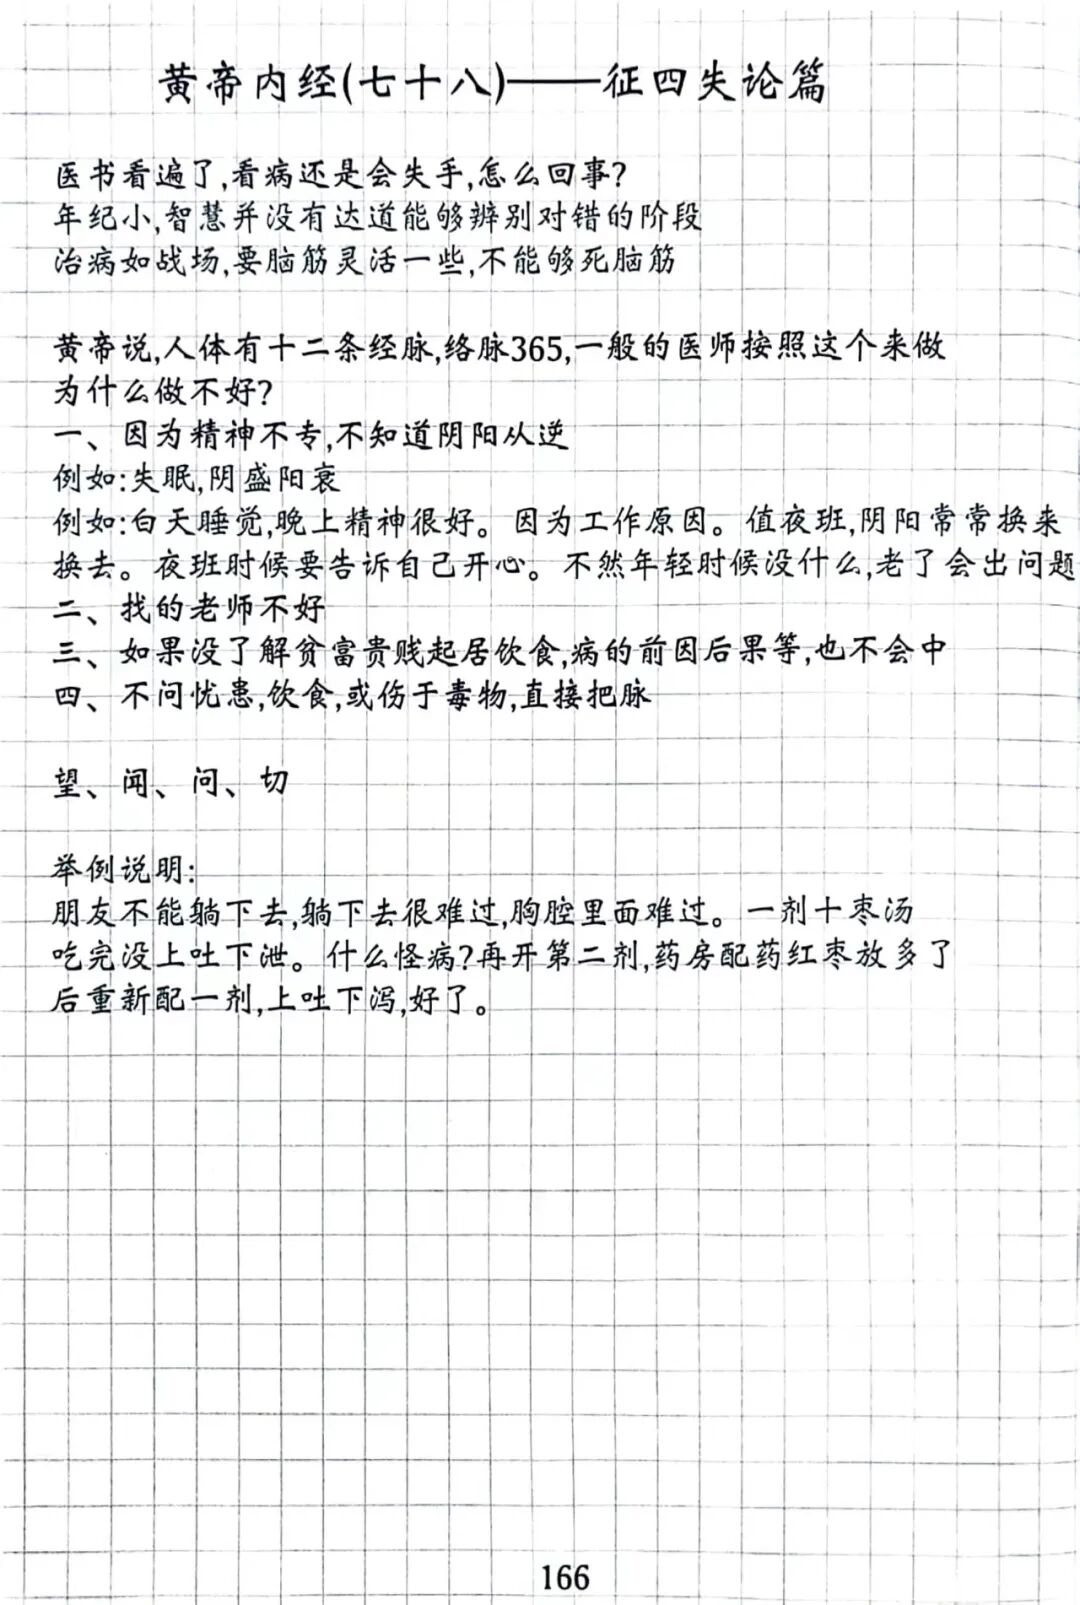 黄帝内经(七十八)——征四失论篇
医书看遍了,看病还是会失手,怎么回事?
年纪小,智慧并没有达道能够辨别对错的阶段
治病如战场,要脑筋灵活一些,不能够死脑筋
黄帝说,人体有十二条经脉,络脉365,一般的医师按照这个来做
为什么做不好?
一、因为精神不专,不知道阴阳从逆
例如:失眠,阴盛阳衰
例如:白天睡觉,晚上精神很好。因为工作原因。值夜班,阴阳常常换来
换去。夜班时候要告诉自己开心。不然年轻时候没什么,老了会出问题
二、找的老师不好
三、如果没了解贫富贵贱起居饮食,病的前因后果等,也不会中
四、不问忧患,饮食,或伤于毒物,直接把脉
望、闻、问、切
举例说明:
朋友不能躺下去,躺下去很难过,胸腔里面难过。一剂十枣汤
吃完没上吐下泄。什么怪病?再开第二剂,药房配药红枣放多了
后重新配一剂,上吐下泻,好了。
166